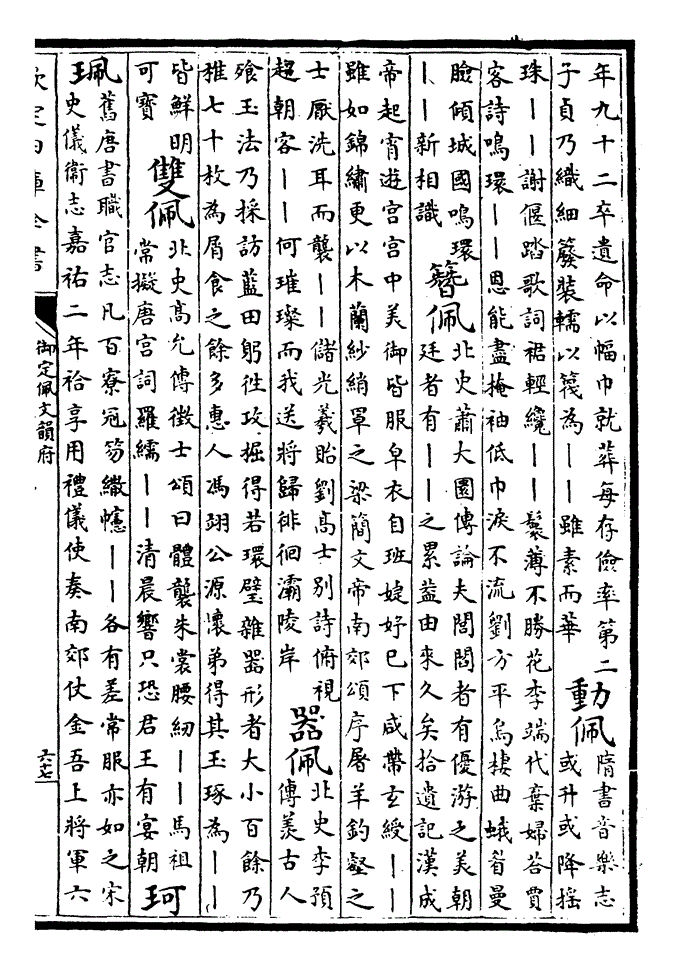 年九十二卒遺命以幅巾就葬每存儉率第二
子貞乃織細簩裝轜以篾為——雖素而華
動佩
隋書音樂志
或升或降揺
珠——謝偃踏歌詞裙輕纔——鬟薄不勝花李端代棄婦荅賈
客詩鳴環——恩能盡掩袖低巾淚不流劉方平烏棲曲蛾眉曼
臉傾城國鳴環
——新相識
簪佩
北史蕭大圜傳論夫閭閻者有優游之美朝
廷者有——之累葢由來久矣拾遺記漢成
帝起宵遊宫宫中美御皆服皁衣自班婕妤已下咸帶玄綬——
雖如錦繡更以木蘭紗綃罩之梁簡文帝南郊頌序屠羊釣壑之
士厭洗耳而襲——儲光羲貽劉髙士别詩俯視
超朝客——何璀璨而我送將歸徘徊灞陵岸
器佩
北史李預
傳羡古人
飱玉法乃採訪藍田躬徃攻掘得若環璧雜器形者大小百餘乃
推七十枚為屑食之餘多惠人馮翊公源懷弟得其玉琢為——
皆鮮明
可寳
雙佩
北史髙允傳徴士頌曰體襲朱裳腰紉——馬祖
常擬唐宫詞羅繻——清晨響只恐君王有宴朝
珂
珮
舊唐書職官志凡百寮冠笏繖幰——各有差常服亦如之宋
史儀衛志嘉祐二年祫享用禮儀使奏南郊仗金吾上將軍六
欽定四庫全書
御定佩文韻府
六十七